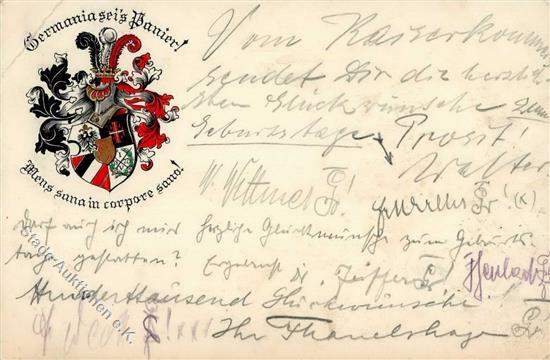 Germania sei's Panier!
Mens sana in corpore sano!
Vom Kaiserkommers
sendet Dir die herzlich
sten Glückwünsche zum
Geburtstage. Prosit!
Walter
W. Wittmer
(x)
Darf auch ich mir herzliche Glückwünsche zum Geburts
tage gestatten? Ergebenst
Hunderttausend Glückwünsche
Ihr
Stade Auktionen e.K.